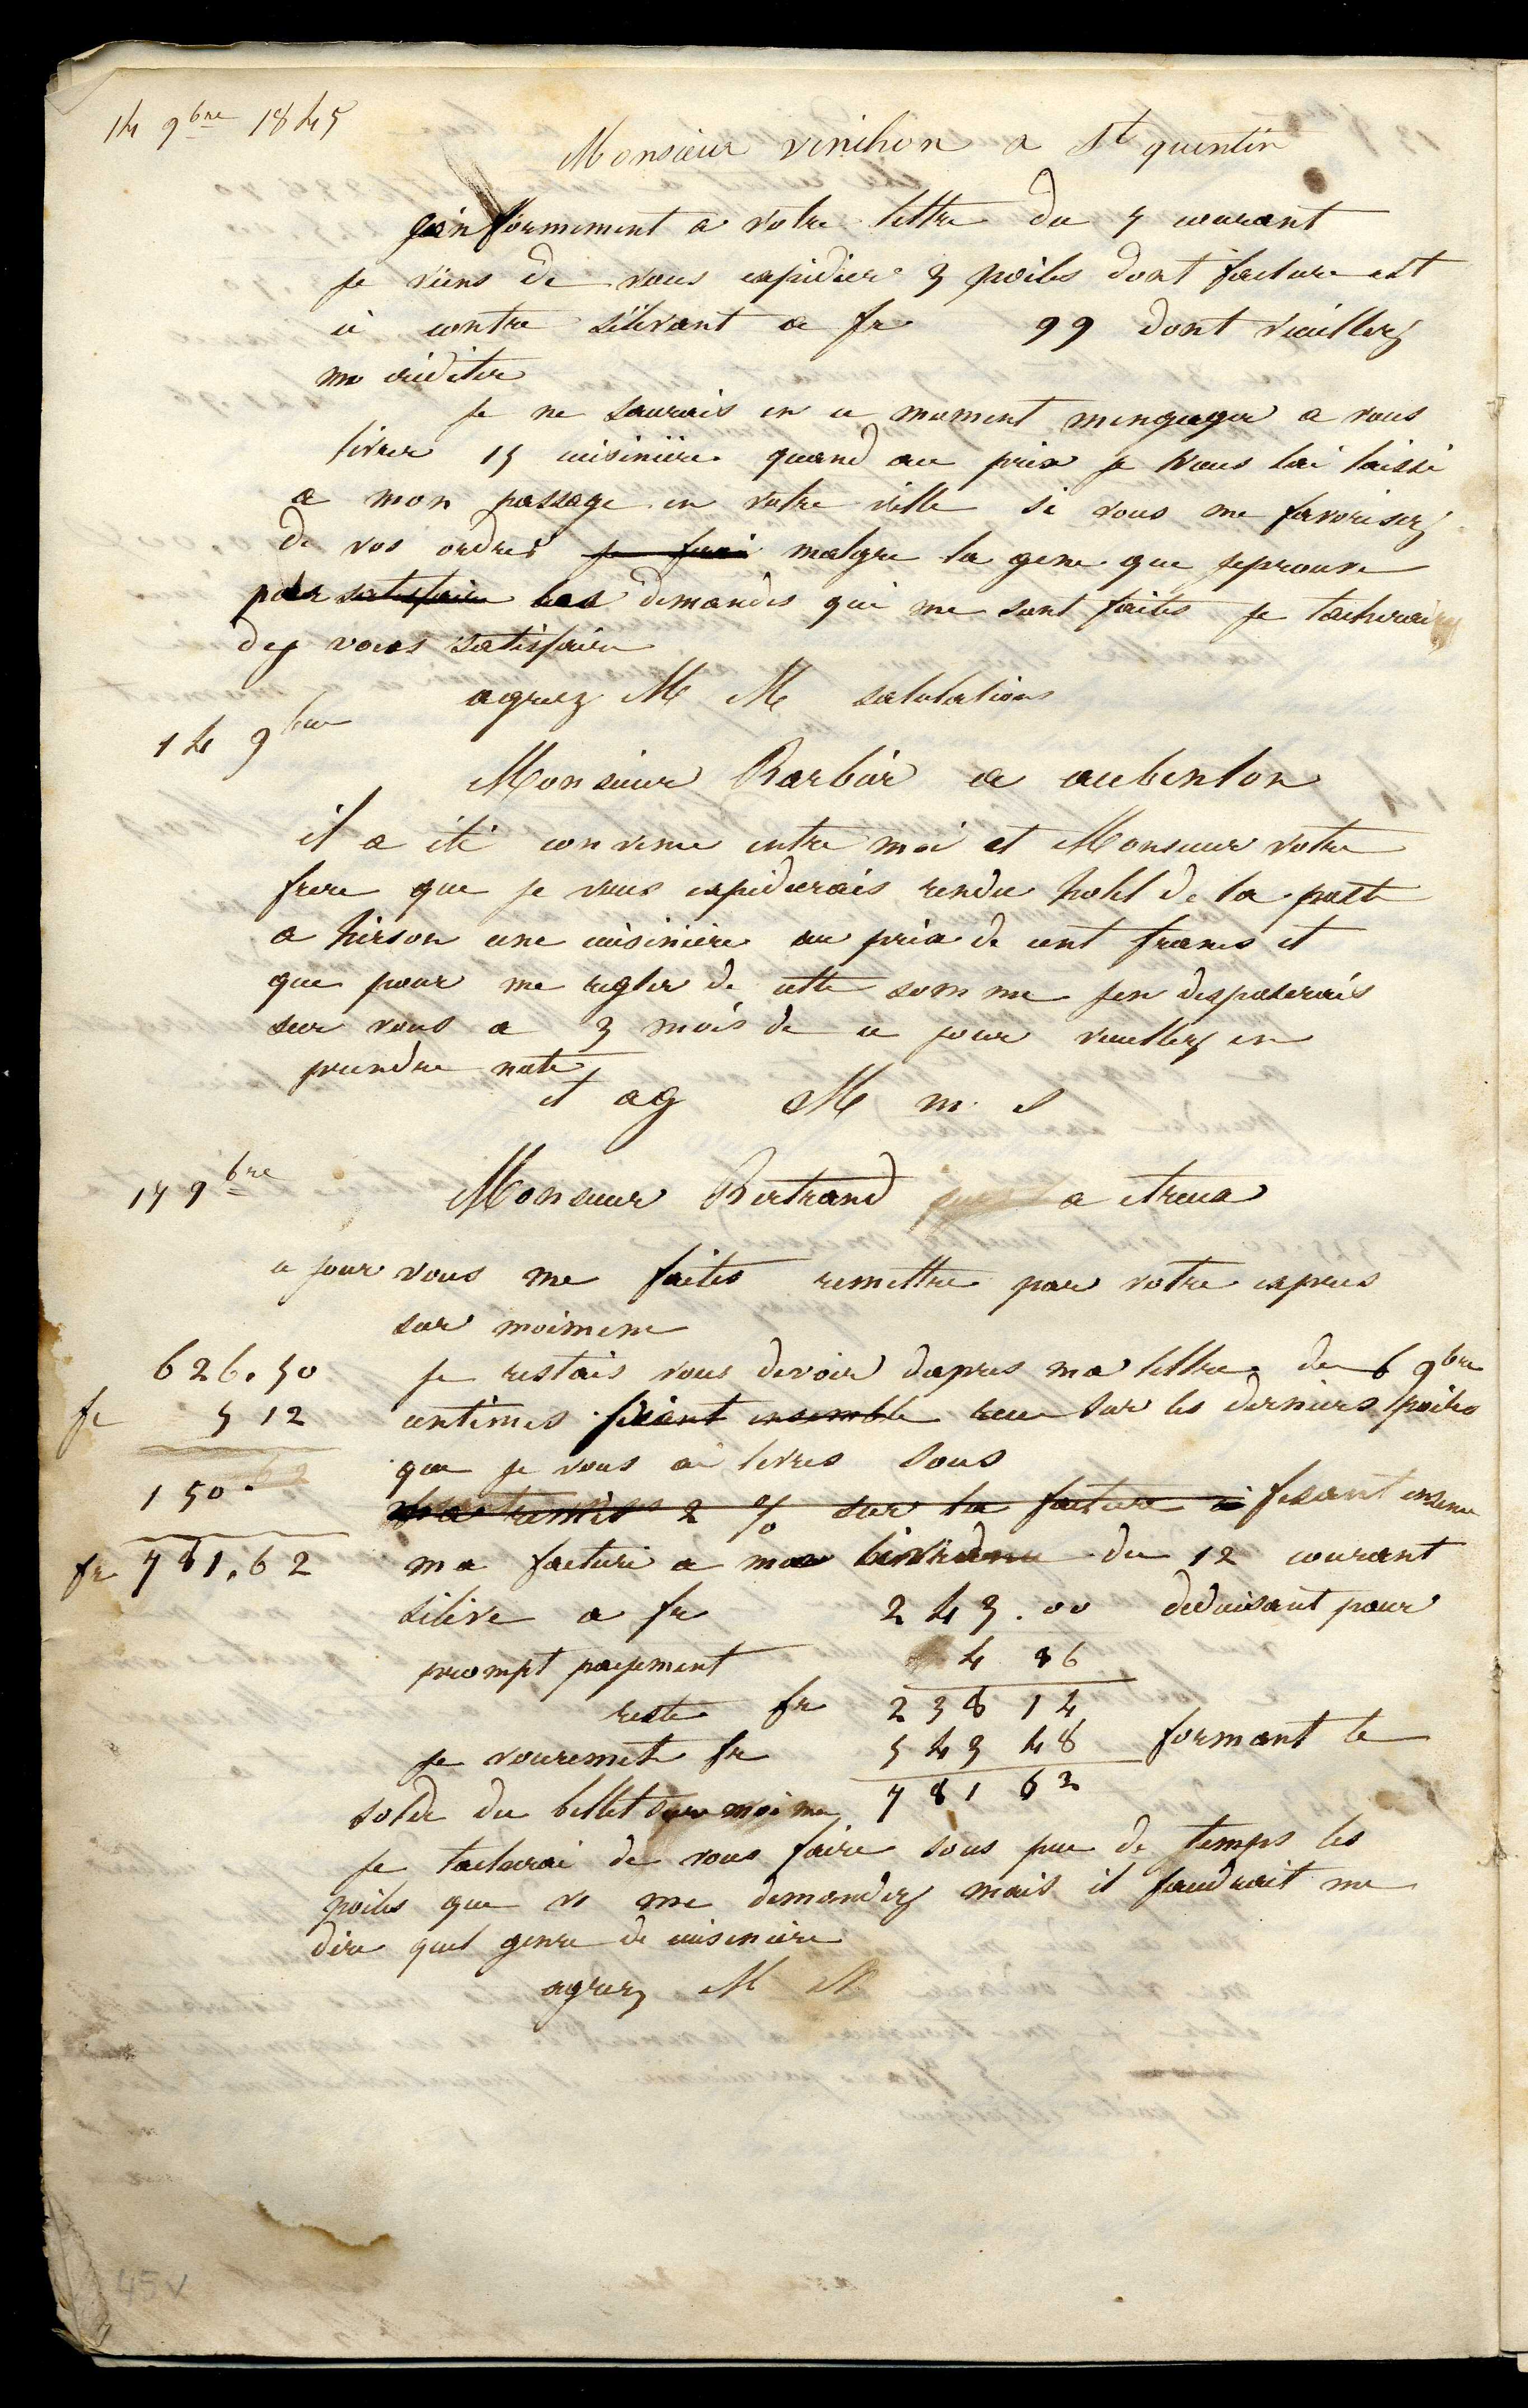 14 9bre 1845
Monsieur vinchon a St quentin
Conformement a votre lettre du 5 courant
je viens de vous expedier 3 poiles dont facture est
ci contre s'élevant a fr 99 dont veuillez
me créditer
je ne saurais en ce moment mengager a vous
livrer 15 cuisiniere quand au prix je vous lai laissé
a mon passage en votre ville si vous me favorisez
de vos ordres je ferai malgre la gene que jeprouve
par satisfaire les demandes qui me sont faites je tacherai
de vous satisfaire
agreez M M salutations
14 9bre
Monsieur Barbier a aubenton
il a été convenu entre moi et Monsieur votre
frere que je vous expedierais rendu hotel de la poste
a hirson une cuisiniere au prix de cent francs et
que pour me regler de cette somme jen disposerais
sur vous a 3 mois de ce jour veuillez en
prendre note
et ag M m s
15 9bre
Monsieur Bertrand a etreux
ce jour vous me faites remettre par votre expres
sur moimeme
626.50 je restais vous devoir dapres ma lettre du 6 9bre
fr 5 12 centimes fesant ensemble sur les derniers poiles
150. que je vous ai livres sous
remise 2 % sur la facture fesant ensem
fr 781.62 ma facture a du 12 courant
sélève a fr 243.00 deduisant pour
prompt payement 4 86
reste fr 238 14
je vous remet fr 543 48 formant le
solde du billet sur moi me 781 62
je tacherai de vous faire sous peu de temps les
poiles que vs me demandez mais il faudrait me
dire quel genre de cuisiniere
agreez M M
45v